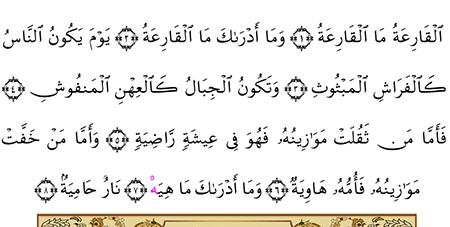 ٱلۡقَارِعَةُ مَا ٱلۡقَارِعَةُ ﴿١﴾ وَمَآ أَدۡرَىٰكَ مَا ٱلۡقَارِعَةُ ﴿٢﴾ يَوۡمَ يَكُونُ ٱلنَّاسُ
كَٱلۡفَرَاشِ ٱلۡمَبۡثُوثِ ﴿٣﴾ وَتَكُونُ ٱلۡجِبَالُ كَٱلۡعِهۡنِ ٱلۡمَنفُوشِ ﴿٤﴾
فَأَمَّا مَن ثَقُلَتۡ مَوَٰزِينُهُۥ فَهُوَ فِي عِيشَةٖ رَّاضِيَةٖ ﴿٥﴾ وَأَمَّا مَنۡ خَفَّتۡ
مَوَٰزِينُهُۥ فَأُمُّهُۥ هَاوِيَةٞ ﴿٦﴾ وَمَآ أَدۡرَىٰكَ مَا هِيَهۡ ﴿٧﴾ نَارٌ حَامِيَةُۢ ﴿٨﴾